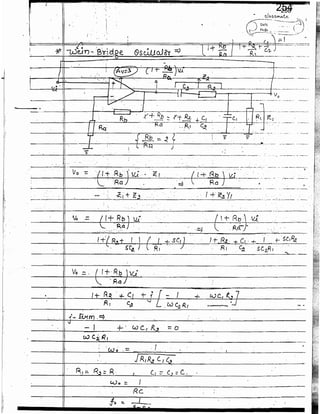 254
classmate
* Wein - Bridge Oscillator ⇒
1 + Rb/Ra = 1 + R2/R1 + C1/C2
Av=3
(1 + Rb/Ra) Vi
Z2
C2 R2
Vi
Vo
Rb
Ra
C1 R1 Z1
1 + Rb/Ra = 1 + R2/R1 + C1/C2
{ Rb/Ra = 2 }
Vo = (1 + Rb/Ra) Vi · Z1 / (Z1 + Z2) ⇒ (1 + Rb/Ra) Vi / (1 + Z2 Y1)
Vo = (1 + Rb/Ra) Vi / (1 + (R2 + 1/SC2) (1/R1 + SC1)) ⇒ (1 + Rb/Ra) Vi / (1 + R2/R1 + C1/C2 + 1/SC2R1 + SC1R2)
Vo = (1 + Rb/Ra) Vi / (1 + R2/R1 + C1/C2 + j [ -1/ωC2R1 + ωC1R2 ])
j - term ⇒
-1/ωC2R1 + ωC1R2 = 0
ωo = 1/√R1R2C1C2
R1 = R2 = R C1 = C2 = C
ωo = 1/RC
fo =